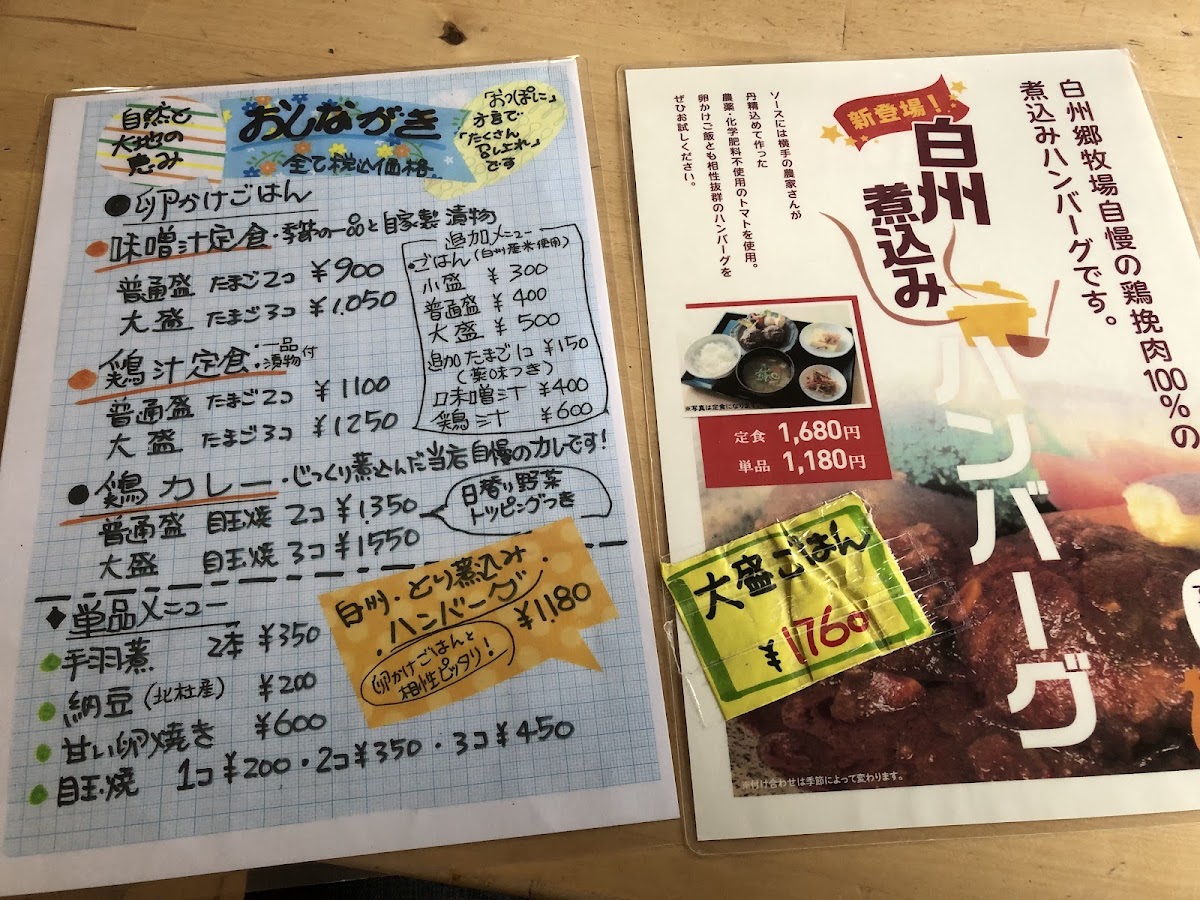 自然と
大地の
恵み
おしながき
全て税込価格
「おっぽに」
方言で
「たくさん
召し上れ」
です
●卵かけごはん
●味噌汁定食・季節の一品と自家製漬物
普通盛 たまご2コ ¥900
大盛 たまご3コ ¥1.050
●鶏汁定食・一品・漬物付
普通盛 たまご2コ ¥1100
大盛 たまご3コ ¥1250
追加メニュー
・ごはん(白州産米使用)
小盛 ¥300
普通盛 ¥400
大盛 ¥500
追加たまご1コ ¥150
(薬味つき)
味噌汁 ¥400
鶏汁 ¥600
●鶏カレー・じっくり煮込んだ当店自慢のカレーです!
普通盛 目玉焼 2コ ¥1.350
大盛 目玉焼 3コ ¥1550
日替り野菜
トッピングつき
◆単品メニュー
●手羽煮 2本 ¥350
●納豆(北杜産) ¥200
●甘い卵焼き ¥600
●目玉焼 1コ¥200・2コ¥350・3コ¥450
白州・とり煮込み
ハンバーグ
¥1.180
卵かけごはんと
相性ピッタリ!
白州郷牧場自慢の鶏挽肉100%の
煮込みハンバーグです。
新登場!
白州
煮込み
ハンバーグ
ソースには横手の農家さんが
丹精込めて作った
農薬・化学肥料不使用のトマトを使用。
卵かけご飯とも相性抜群のハンバーグを
ぜひお試しください。
定食 1,680円
単品 1,180円
大盛ごはん
¥1760
※付け合わせは季節によって変わります。